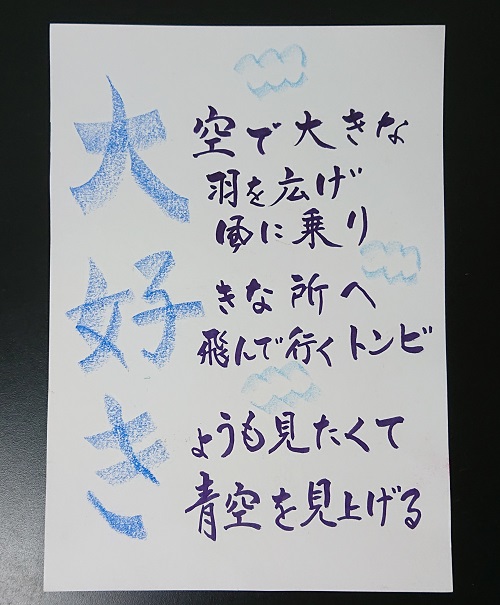 大好き
空で大きな
羽を広げ
風に乗り
きな所へ
飛んで行くトンビ
ょうも見たくて
青空を見上げる